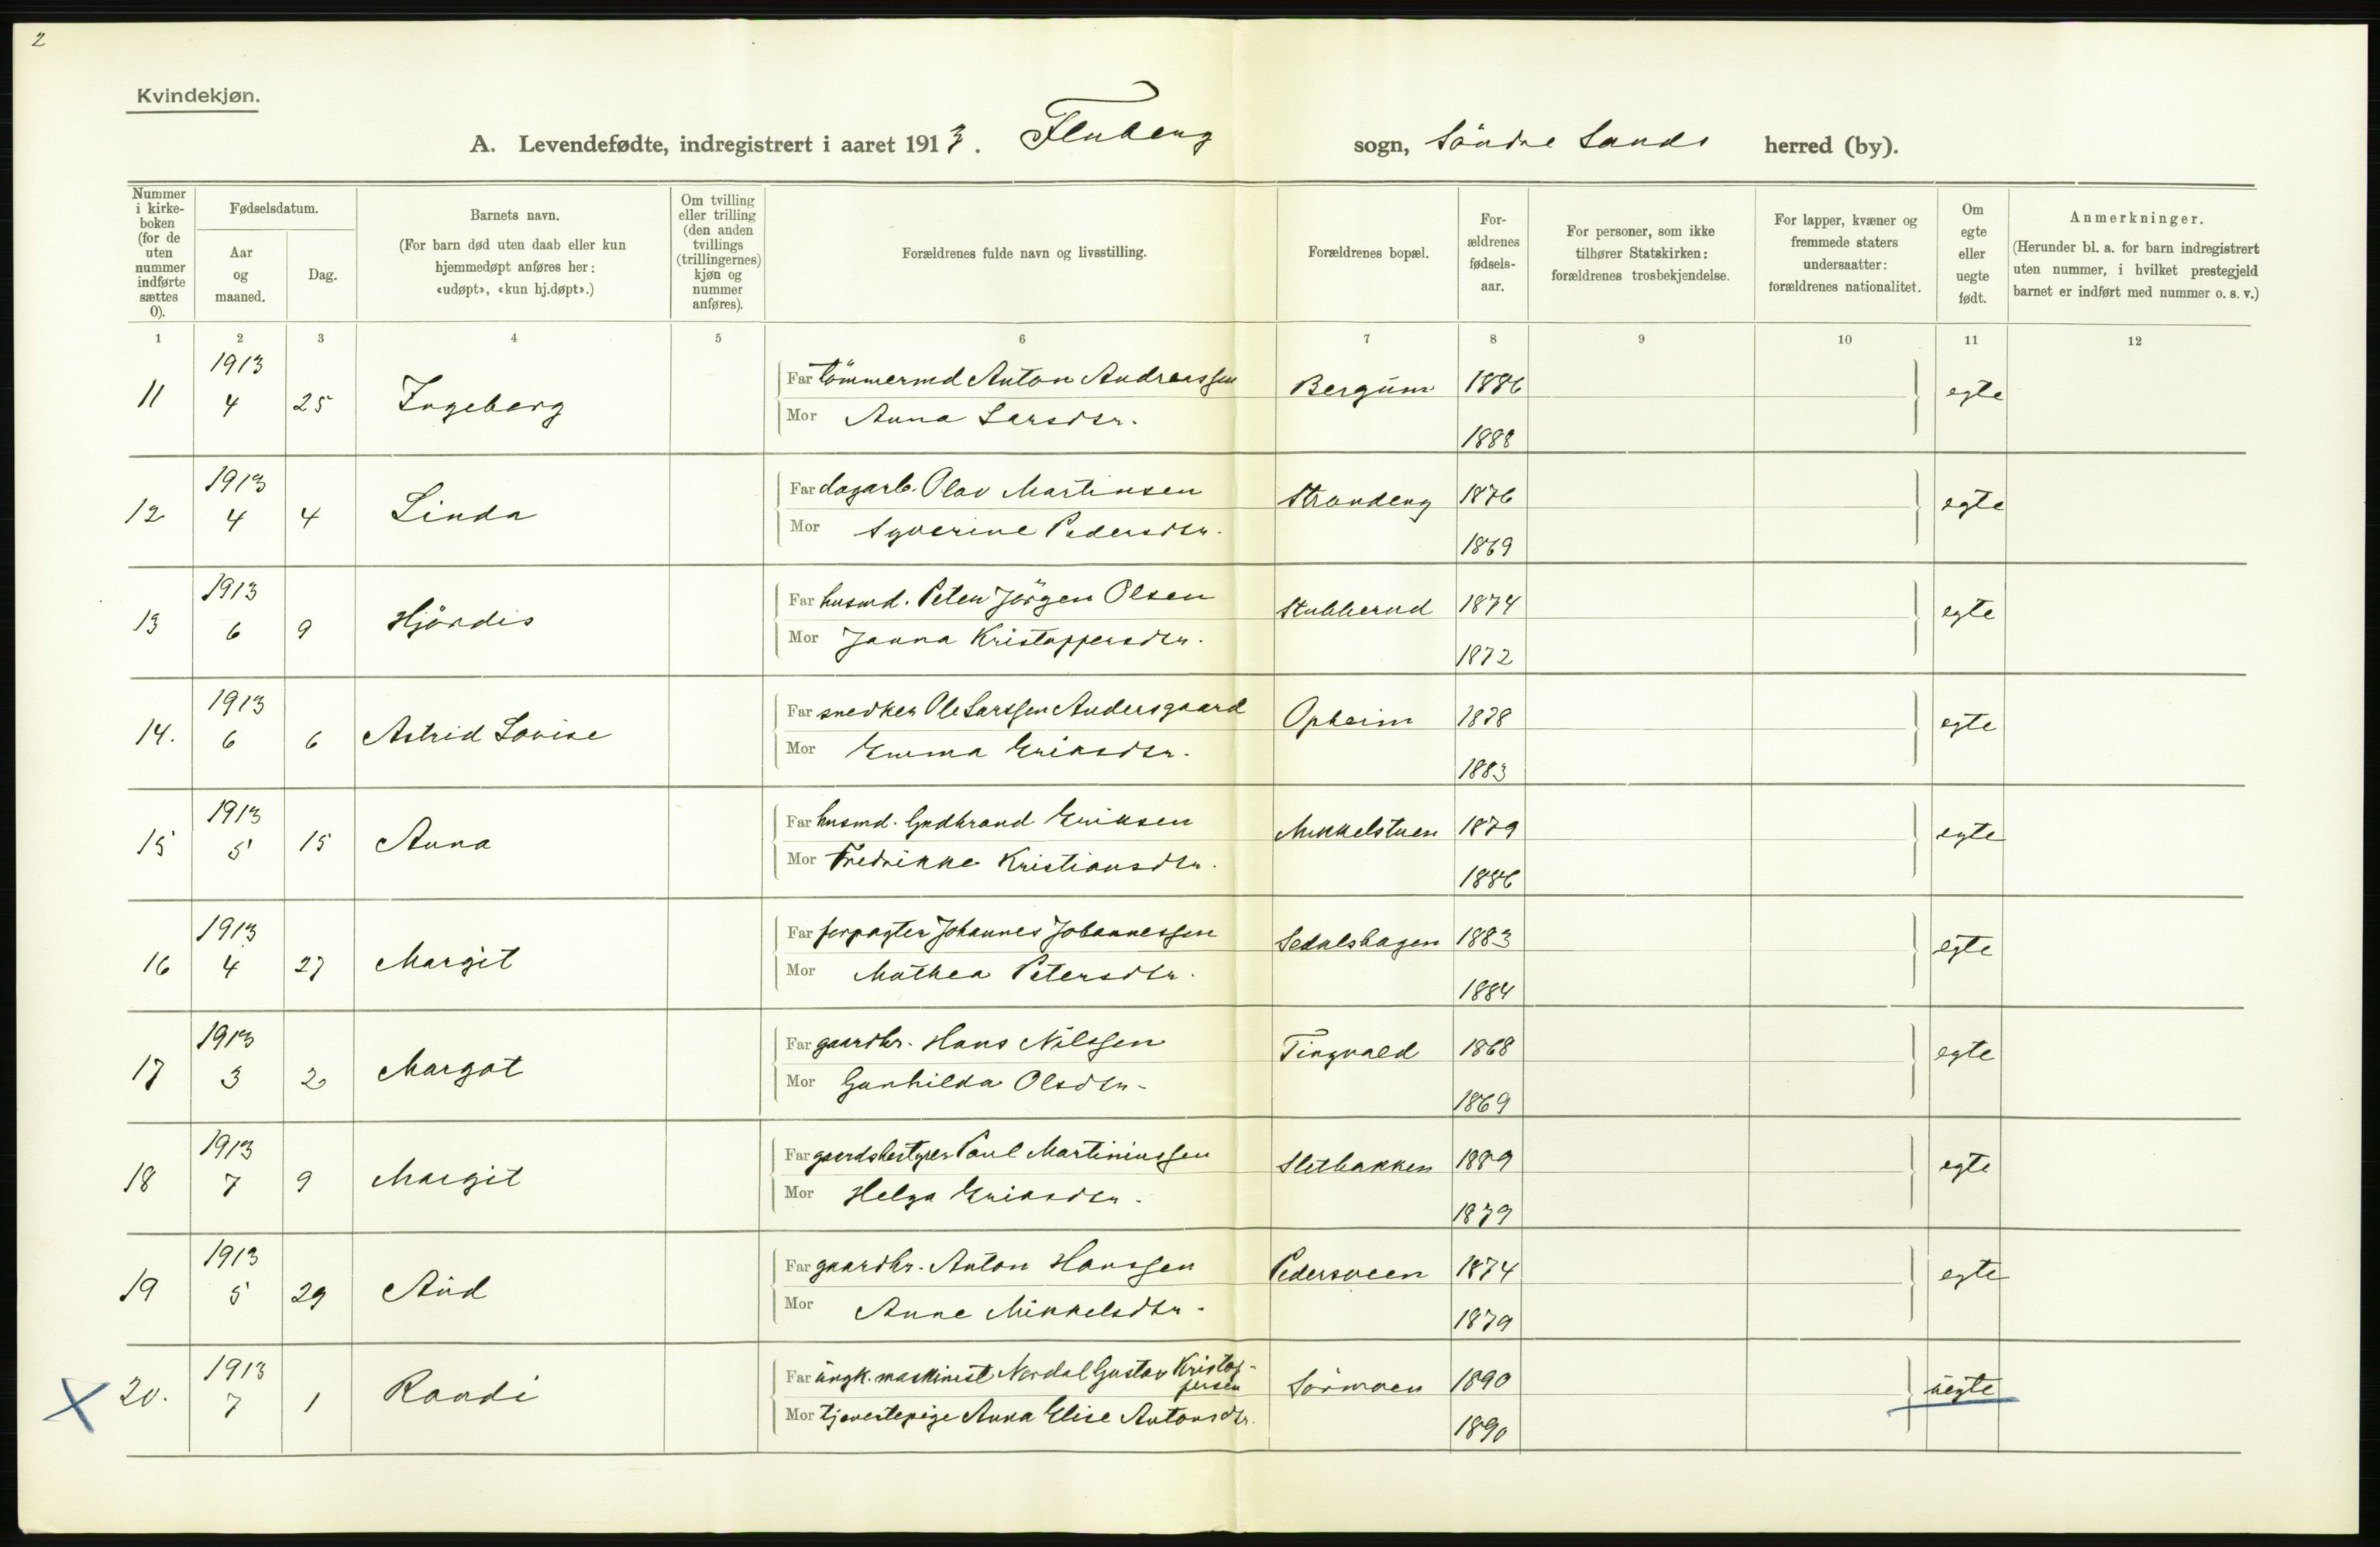 2
Kvindekjøn.
A. Levendefødte, indregistrert i aaret 1913. Fluberg sogn, Söndre Lands herred (by).
Nummer i kirke-boken (for de uten nummer indførte sættes 0).
Fødselsdatum.
Aar og maaned.
Dag.
Barnets navn.
(For barn død uten daab eller kun hjemmedøpt anføres her: «udøpt», «kun hj.døpt».)
Om tvilling eller trilling (den anden tvillings (trillingernes) kjøn og nummer anføres).
Forældrenes fulde navn og livsstilling.
Forældrenes bopæl.
For-ældrenes fødsels-aar.
For personer, som ikke tilhører Statskirken: forældrenes trosbekjendelse.
For lapper, kvæner og fremmede staters undersaatter: forældrenes nationalitet.
Om egte eller uegte født.
Anmerkninger.
(Herunder bl. a. for barn indregistrert uten nummer, i hvilket prestegjeld barnet er indført med nummer o. s. v.)
1 2 3 4 5 6 7 8 9 10 11 12
11 1913 4 25 Ingeborg Far tömmermd Anton Andreassen Bergum 1886 egte
Mor Anna Larsdtr. 1888
12 1913 4 4 Linda Far dagarb. Olav Martinsen Strandeng 1876 egte
Mor Syverine Pedersdtr. 1869
13 1913 6 9 Hjördis Far husmd. Peter Jörgen Olsen Stubberud 1874 egte
Mor Janna Kristoffersdtr. 1872
14. 1913 6 6 Astrid Lovise Far snedker Ole Larssen Andersgaard Opheim 1878 egte
Mor Emma Eriksdtr. 1883
15 1913 5 15 Anna Far husmd. Gudbrand Eriksen Mikkelstuen 1879 egte
Mor Fredrikke Kristiansdtr. 1886
16 1913 4 27 Margit Far forpagter Johannes Johannessen 1883 egte
Mor Mathea Petersdtr. 1884
17 1913 3 2 Margot Far gaardbr. Hans Nilssen Tingvald 1868 egte
Mor Gunhilda Olsdtr. 1869
18 1913 7 9 Margit Far gaardsbestyrer Paul Martiniussen Sletbakken 1889 egte
Mor Helga Eriksdtr. 1879
19 1913 5 29 Aud Far gaardbr. Anton Hanssen Pedersveen 1874 egte
Mor Anne Mikkelsdtr. 1879
20. 1913 7 1 Randi Far ungk. maskinist Nordal Gustav Kristoffersen Sörmoen 1890 uegte
Mor tjenestepige Anna Elise Antonsdtr. 1890